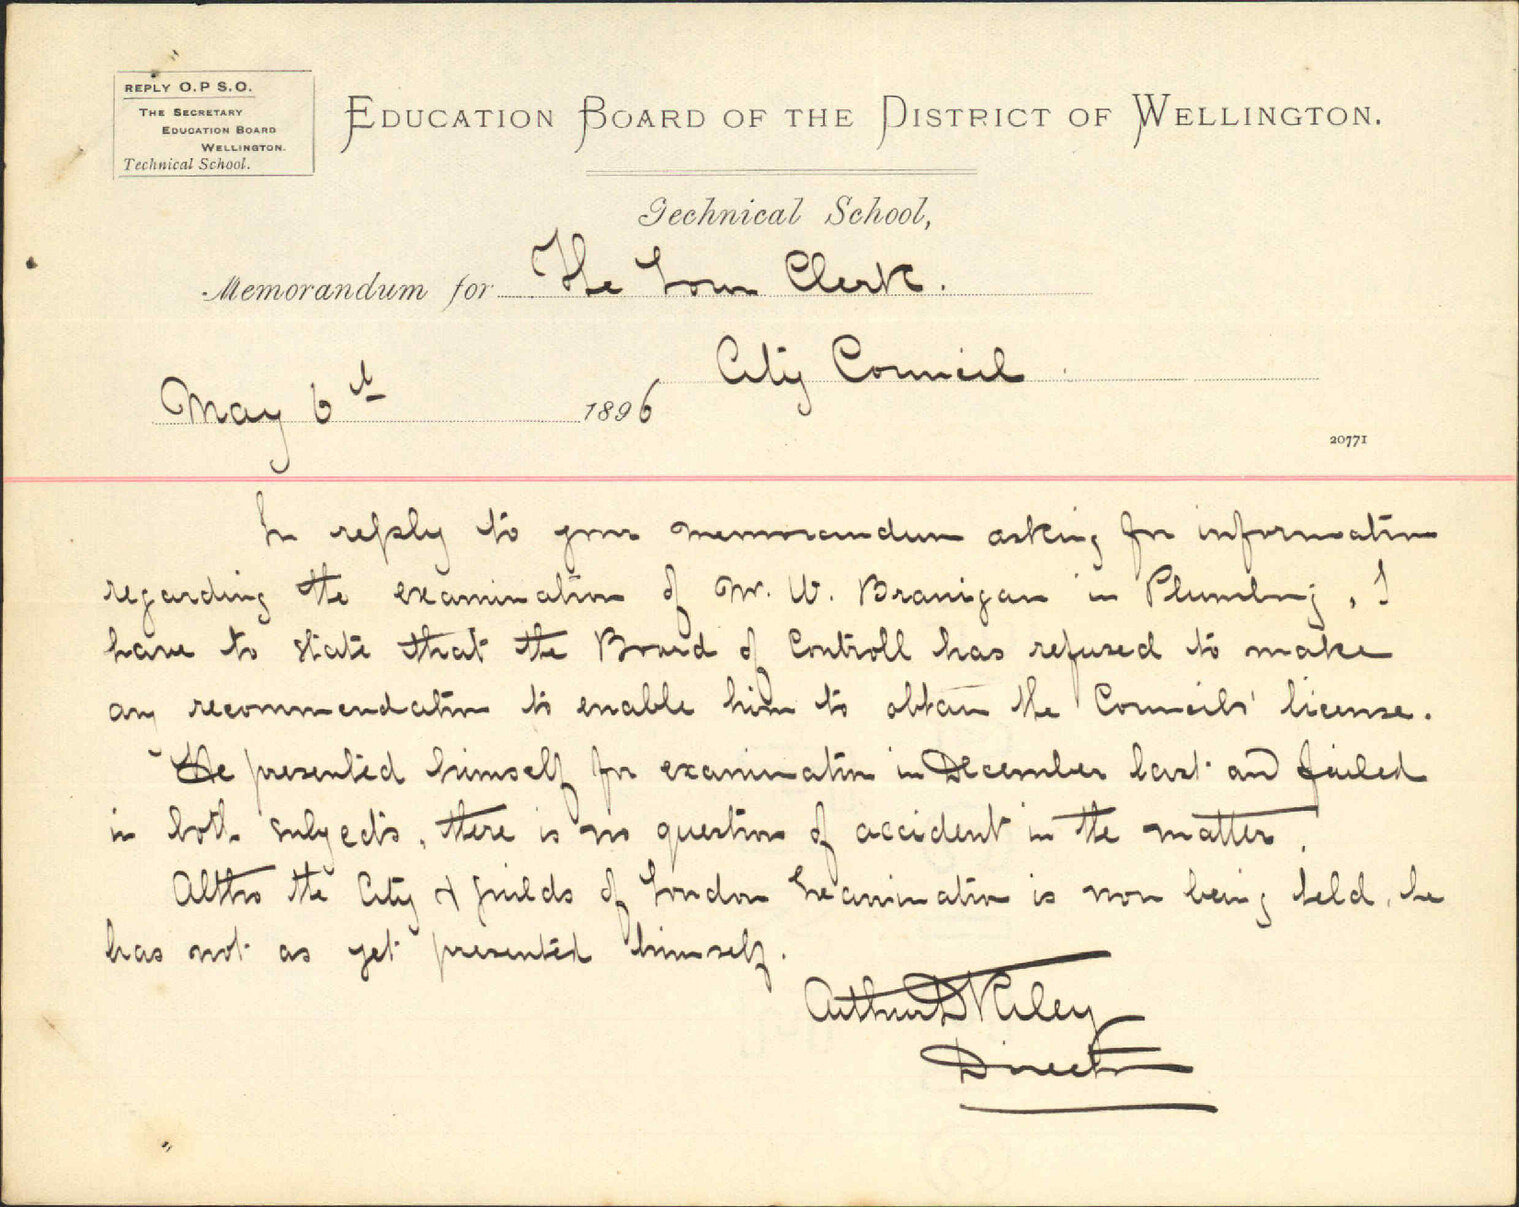 REPLY O.P S.O.
THE SECRETARY
EDUCATION BOARD
WELLINGTON.
Technical School.
EDUCATION BOARD OF THE DISTRICT OF WELLINGTON.
Technical School,
Memorandum for The Town Clerk.
City Council
May 6th 1896
20771
In reply to your memorandum asking for information
regarding the examination of Mr. W. Branigan in Plumbing, I
have to state that the Board of Controll has refused to make
any recommendation to enable him to obtain the Councils' license.
He presented himself for examination in December last and failed
in both subjects, there is no question of accident in the matter.
Altho the City & Guilds of London Examination is now being held, he
has not as yet presented himself.
Arthur D Riley
Director